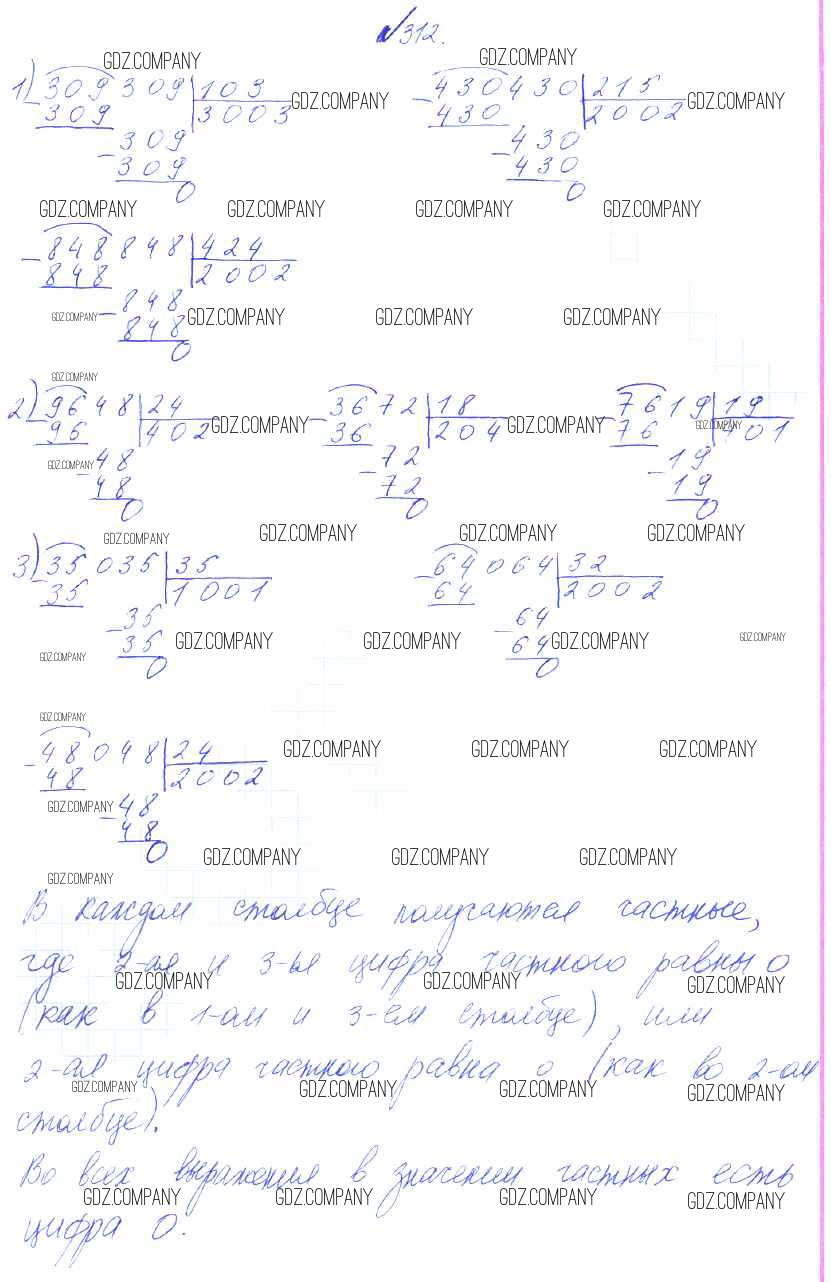 №312.
GDZ.COMPANY GDZ.COMPANY
1) 309309 103 430430 215
309 3003 GDZ.COMPANY 430 2002 GDZ.COMPANY
309 430
309 430
0 0
GDZ.COMPANY GDZ.COMPANY GDZ.COMPANY GDZ.COMPANY
848848 424
848 2002
848
GDZ.COMPANY 848 GDZ.COMPANY GDZ.COMPANY GDZ.COMPANY
0
GDZ.COMPANY
2) 9648 24 3672 18 7619 19
96 402 GDZ.COMPANY 36 204 GDZ.COMPANY 76 401 GDZ.COMPANY
GDZ.COMPANY 48 72 19
48 72 19
0 0 0
GDZ.COMPANY GDZ.COMPANY GDZ.COMPANY GDZ.COMPANY
3) 35035 35 64064 32
35 1001 64 2002
35 64
GDZ.COMPANY 35 GDZ.COMPANY GDZ.COMPANY 64 GDZ.COMPANY GDZ.COMPANY
0 0
GDZ.COMPANY
48048 24 GDZ.COMPANY GDZ.COMPANY GDZ.COMPANY
48 2002
GDZ.COMPANY 48
48
0 GDZ.COMPANY GDZ.COMPANY GDZ.COMPANY
GDZ.COMPANY
В каждом столбце получаются частные,
где 2-ая и 3-ья цифра частного равны 0
GDZ.COMPANY GDZ.COMPANY GDZ.COMPANY
(как в 1-ом и 3-ем столбце), или
2-ая цифра частного равна 0 (как во 2-ом
GDZ.COMPANY GDZ.COMPANY GDZ.COMPANY GDZ.COMPANY
столбце).
Во всех выражения в значении частных есть
GDZ.COMPANY GDZ.COMPANY GDZ.COMPANY GDZ.COMPANY
цифра 0.